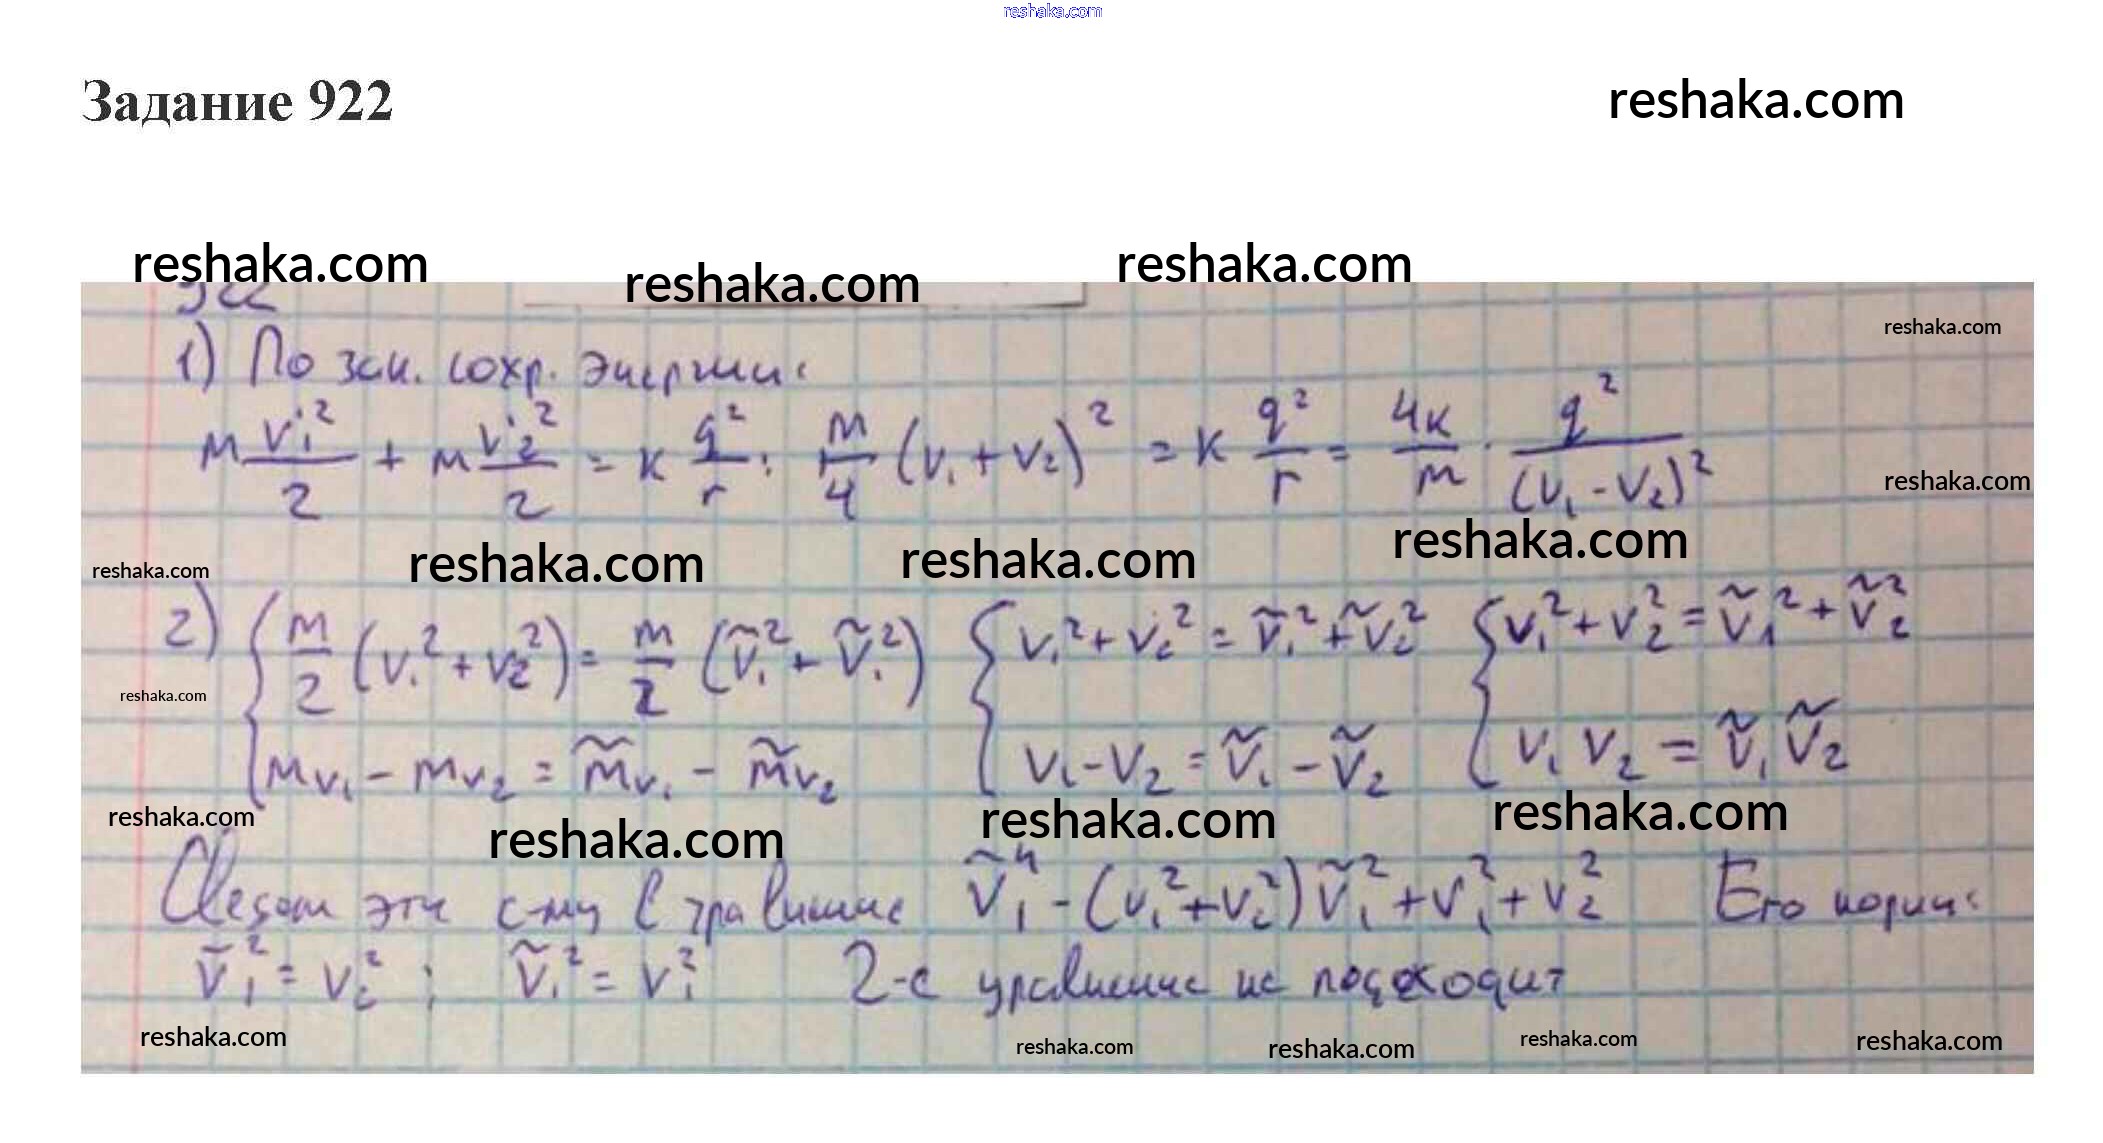 reshaka.com
Задание 922
reshaka.com
reshaka.com reshaka.com reshaka.com
922
reshaka.com
1) По зак. сохр. энергии:
m v₁'²/2 + m v₂'²/2 = k q²/r ; m/4 (v₁ + v₂)² = k q²/r = 4k/m · q²/(v₁ - v₂)²
reshaka.com
reshaka.com reshaka.com reshaka.com reshaka.com
2) { m/2 (v₁² + v₂²) = m/2 (ṽ₁² + ṽ₁²) { v₁² + v₂² = ṽ₁² + ṽ₂² { v₁² + v₂² = ṽ₁² + ṽ₂²
reshaka.com
mv₁ - mv₂ = m̃v₁ - m̃v₂ v₁ - v₂ = ṽ₁ - ṽ₂ v₁ v₂ = ṽ₁ ṽ₂
reshaka.com reshaka.com reshaka.com reshaka.com
Сведем эту с-му к уравнению ṽ₁⁴ - (v₁² + v₂²) ṽ₁² + v₁² + v₂² Его корни:
ṽ₁² = v₂² ; ṽ₁² = v₁² 2-е уравнение не подходит
reshaka.com reshaka.com reshaka.com reshaka.com reshaka.com